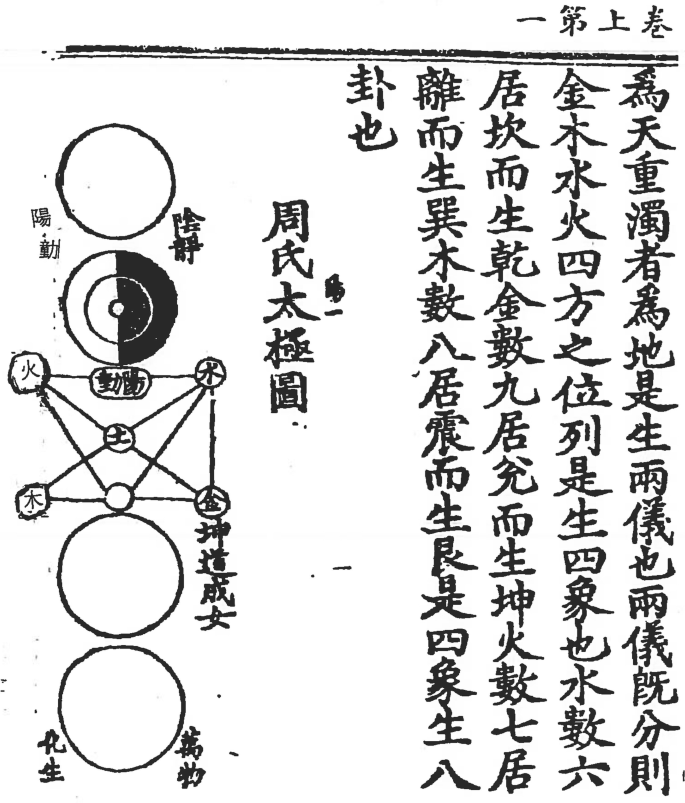 卷上第一
爲天重濁者爲地是生兩儀也兩儀既分則
金木水火四方之位列是生四象也水數六
居坎而生乾金數九居兌而生坤火數七居
離而生巽木數八居震而生艮是四象生八
卦也
周氏太極圖
陰靜
陽動
火
陽動
水
土
木
金
坤道成女
萬物
化生